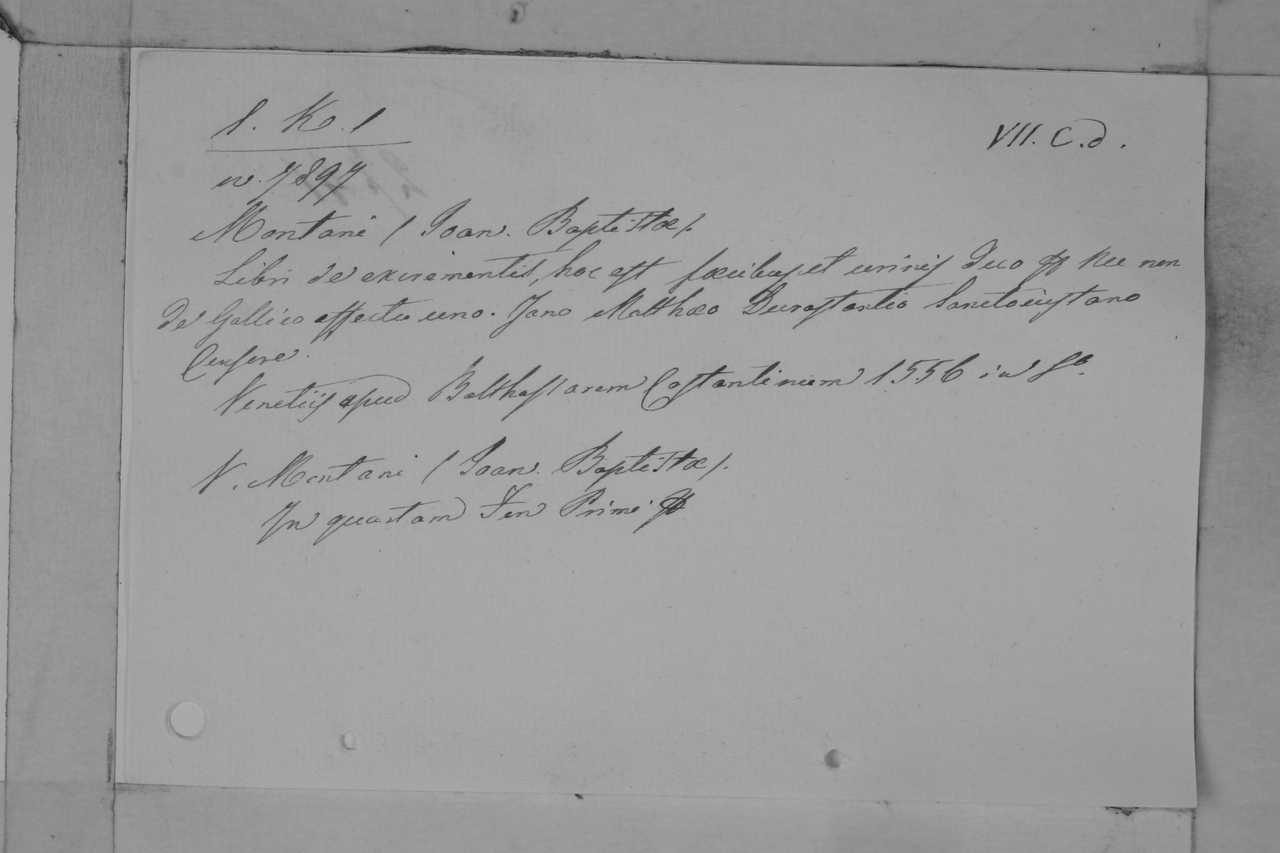 8. K. 1
VII. C. d.
w. 7897
Montani / Joan. Baptistæ /.
Libri de excrementis, hoc est fæcibus et urinis Duo & Nec non
de Gallico affectu uno. Jano Matthæo Durastantio Sanctoiustano
Censore.
Venetiis apud Balthassarem Costantinum 1556 in 8°.
N. Montani / Joan. Baptistæ /.
In quartam Fen Primi